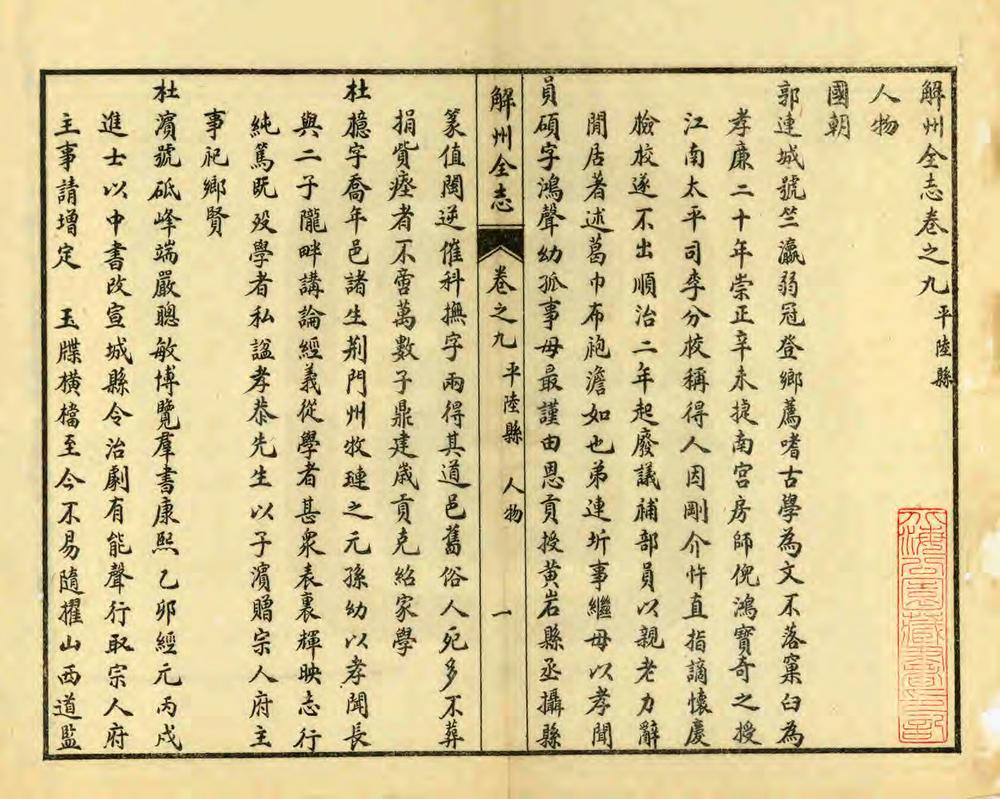 解州全志卷之九平陸縣
人物
國朝
郭連城號竺瀛弱冠登鄉薦嗜古學為文不落窠臼為
孝廉二十年崇正辛未捷南宮房師倪鴻寶奇之授
江南太平司李分校稱得人因剛介忤直指謫懷慶
檢校遂不出順治二年起廢議補部員以親老力辭
閒居著述葛巾布袍澹如也弟連圻事繼母以孝聞
員碩字鴻聲幼孤事母最謹由恩貢授黃岩縣丞攝縣
解州全志 卷之九 平陸縣 人物 一
篆值閩逆催科撫字兩得其道邑舊俗人死多不葬
捐貲瘞者不啻萬數子鼎建歲貢克紹家學
杜檍字喬年邑諸生荊門州牧璉之元孫幼以孝聞長
與二子隴畔講論經義從學者甚衆表裏輝映志行
純篤既歿學者私諡孝恭先生以子濱贈宗人府主
事祀鄉賢
杜濱號砥峰端嚴聰敏博覽羣書康熙乙卯經元丙戌
進士以中書改宣城縣令治劇有能聲行取宗人府
主事請增定 玉牒橫檔至今不易隨擢山西道監